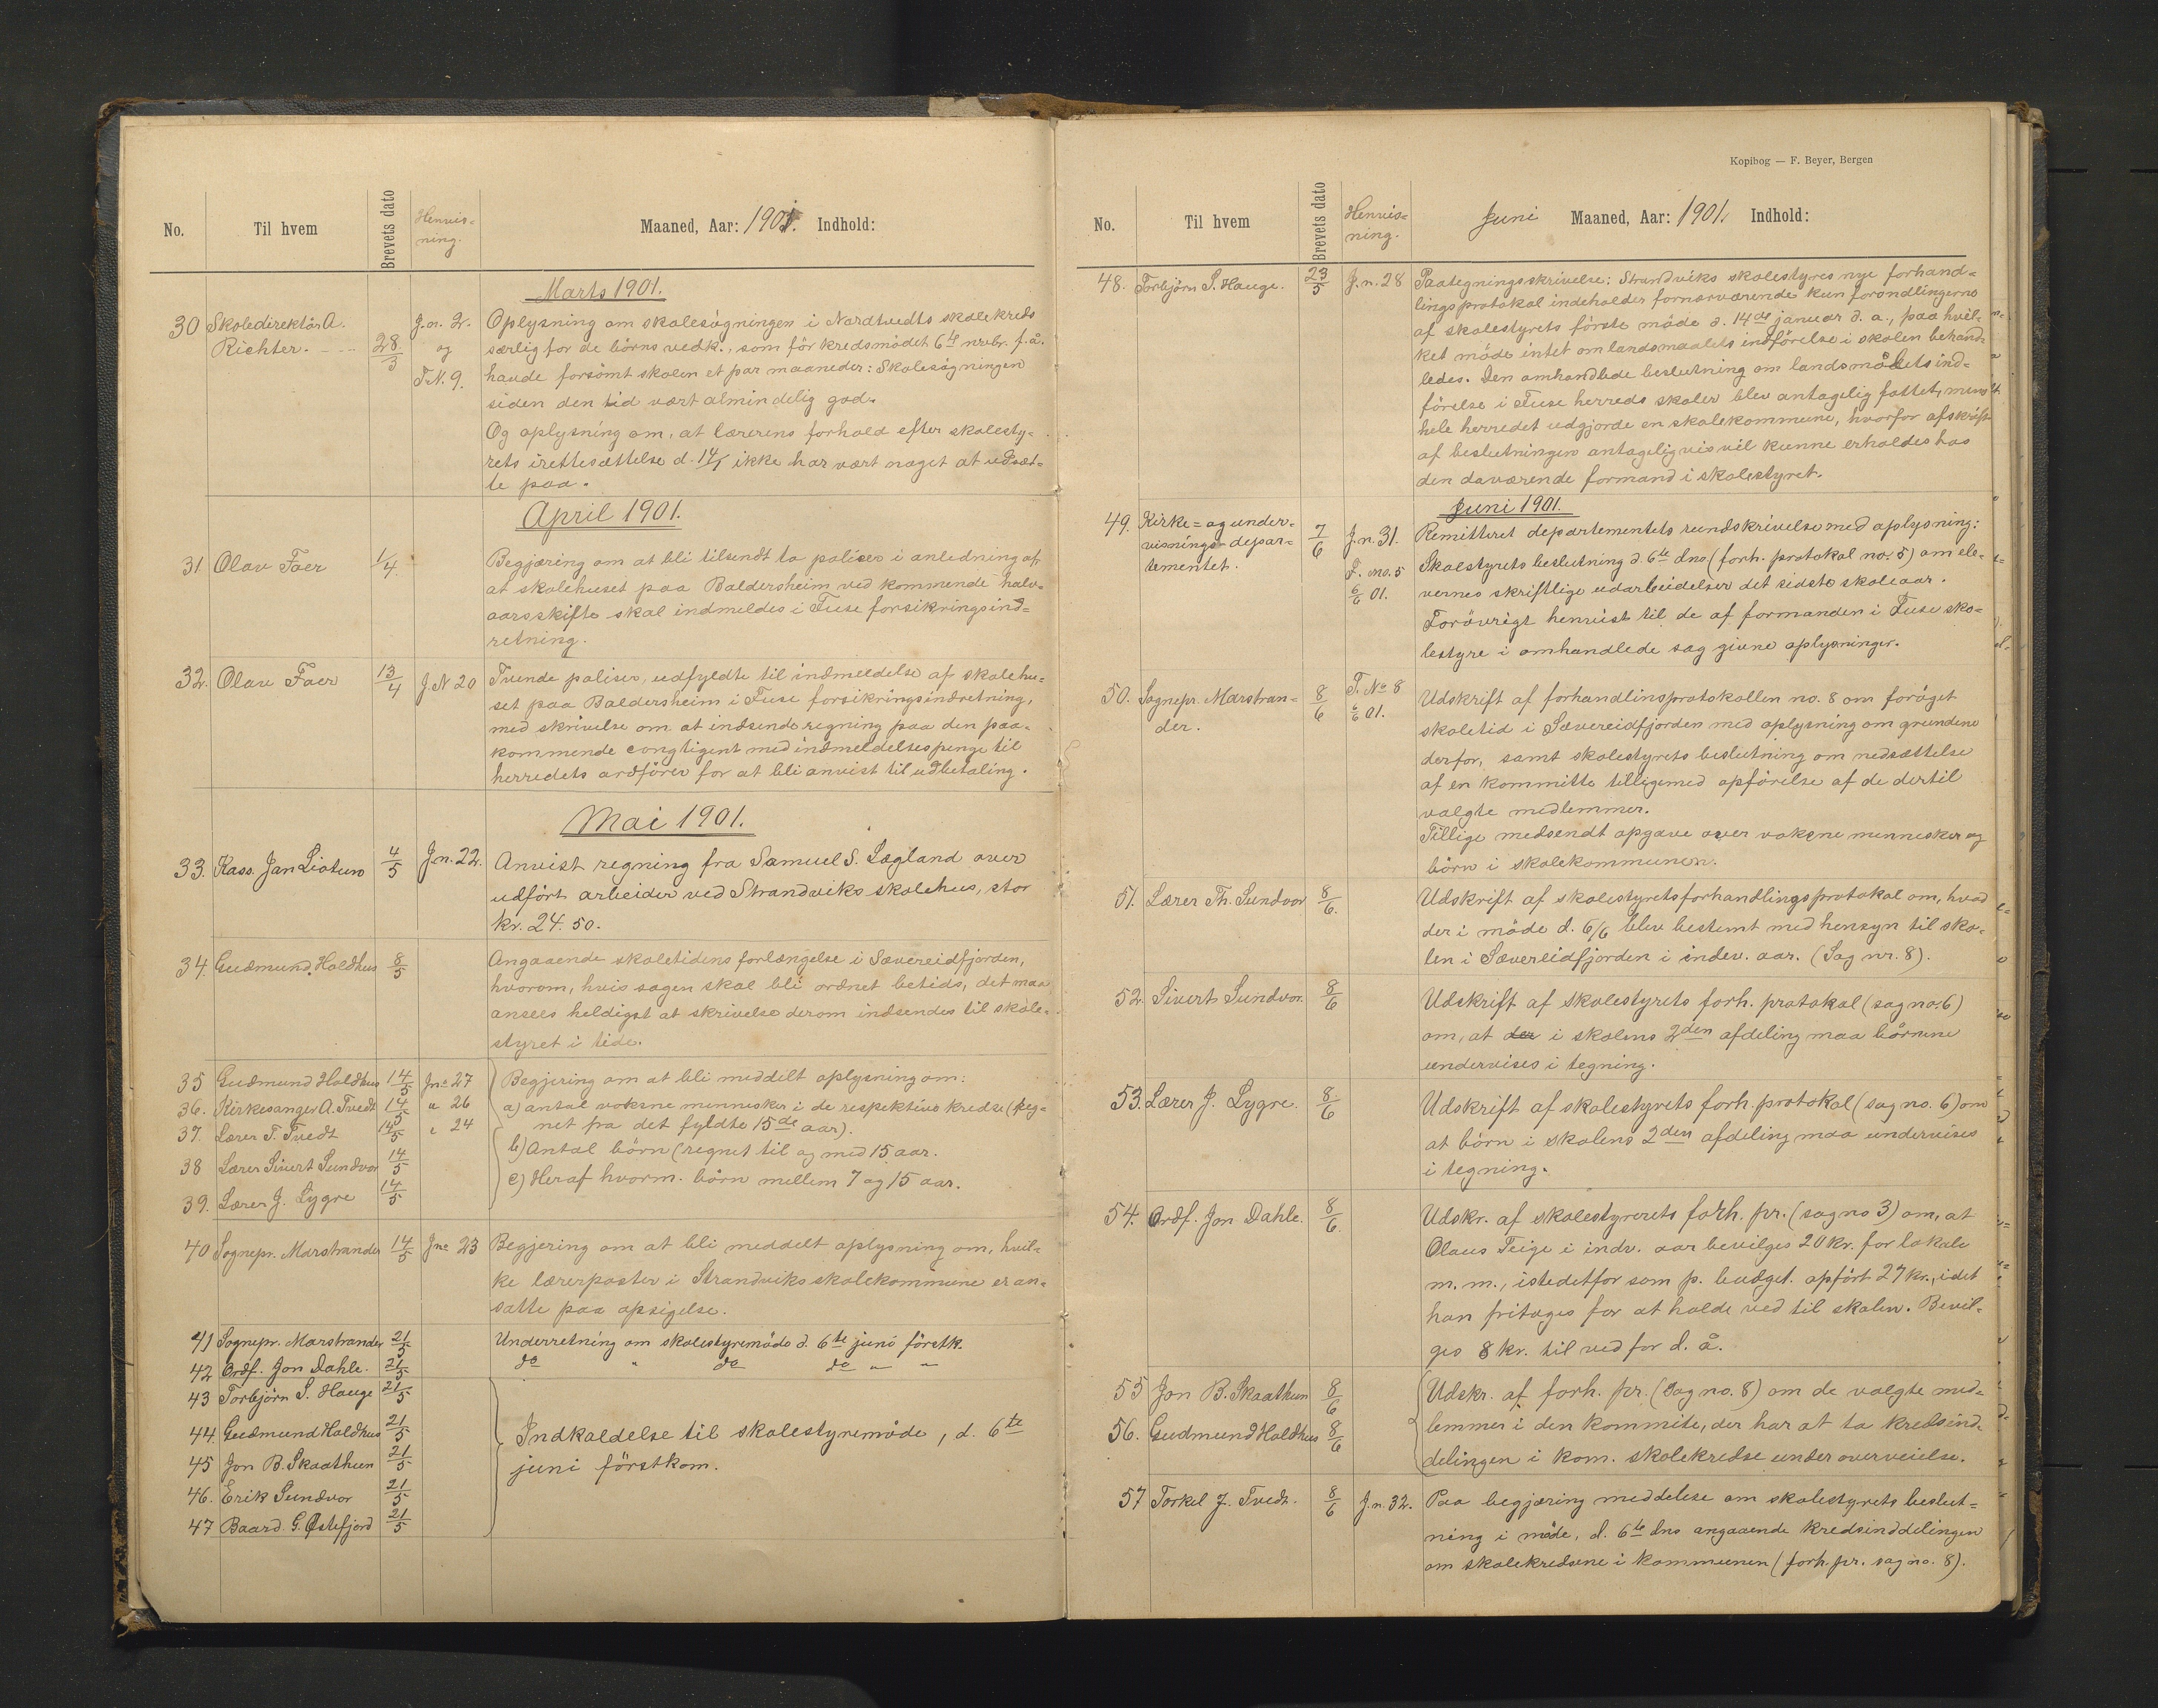 No. Til hvem Brevets dato Henvis=
ning. Maaned, Aar: 1901. Indhold:
Marts 1901.
30 Skoledirektör A. Richter. 28/3 J.n. 2. og F.N. 9. Oplysning om skolesögningen i Nordtvedts skolekreds
særlig for de börns vedk., som för kredsmödet 6te nvbr. f. å.
havde forsömt skolen et par maaneder: Skolesögningen
siden den tid vært almindelig god.
Og oplysning om, at lærerens forhold efter skolesty-
rets irettesættelse d. 14/1 ikke har vært noget at udsæt-
te paa.
April 1901.
31 Olav Foer 1/4. Begjæring om at bli tilsendt to poliser i anledning af
at skolehuset paa Baldersheim ved kommende halv-
aarsskifte skal indmeldes i Fuse forsikringsind=
retning.
32. Olav Foer 13/4 J N 20 Tvende poliser, udfyldte til indmeldelse af skolehu=
set paa Baldersheim i Fuse forsikringsindretning,
med skrivelse om at indsende regning paa den paa-
kommende congtigent med indmeldelsespenge til
herredets ordförer for at bli anvist til udbetaling.
Mai 1901.
33. Kass. Jan Liatun 4/5 J.n. 22. Anvist regning fra Samuel S. Lægland over
udfört arbeider ved Strandviks skolehus, stor
kr. 24. 50.
34. Gudmund Holdhus 8/5 Angaaende skoletidens forlængelse i Sævereidfjorden,
hvorom, hvis sagen skal bli ordnet betids, det maa
ansees heldigst at skrivelse derom indsendes til skole-
styret i tide.
35 Gudmund Holdhus 14/5 Jno 27 Begjering om at bli meddelt oplysning om:
36. Kirkesanger A. Tvedt 14/5 " 26 a) antal voksne mennesker i de respektive kredse (reg=
37. Lærer T. Tvedt 14/5 " 24 net fra det fyldte 15de aar).
38 Lærer Sivert Sundvor 14/5 b) Antal börn (regnet til og med 15 aar.
39. Lærer J. Lygre 14/5 c) Heraf hvorm. börn mellem 7 og 15 aar.
40 Sognepr. Marstrander 14/5 Jno 23 Begjering om at bli meddelt oplysning om, hvil-
ke lærerposter i Strandviks skolekommune er an=
satte paa opsigelse.
41 Sognepr. Marstrander 21/5 Underretning om skolestyremöde d. 6te juni förstk.
42 Ordf. Jon Dahle. 21/5 do " do do " "
43 Torbjörn S. Hauge 21/5
44. Gudmund Holdhus 21/5 Indkaldelse til skolestyremöde, d. 6te
45 Jon B. Skaathun 21/5 juni förstkom.
46. Erik Sundvor 21/5
47 Baard G. Østefjord 21/5
Kopibog — F. Beyer, Bergen
No. Til hvem Brevets dato Henvis=
ning. Juni Maaned, Aar: 1901. Indhold:
48. Torbjörn S. Hauge. 23/5 J.n. 28 Paategningsskrivelse: Strandviks skolestyres nye forhand=
lingsprotokol indeholder fornærværende kun forandlingerne
af skolestyrets förste möde d. 14de januar d. a., paa hvil-
ket möde intet om landsmaalets indförelse i skolen behand-
ledes. Den omhandlede beslutning om landsmålets ind=
förelse i Fuse herreds skoler blev antagelig fattet, mens
hele herredet udgjorde en skolekommune, hvorfor afskrift
af beslutningen antageligvis vil kunne erholdes hos
den daværende formand i skolestyret.
Juni 1901.
49. Kirke= og under-
visnings-depar=
tementet. 7/6 J.n. 31. F. no. 5 6/6 01. Remitteret departementets rundskrivelse med oplysning:
Skolestyrets beslutning d. 6te dns (forh. protokol no. 5) om ele-
vernes skriftlige udarbeidelser det sidste skoleaar.
Forövrigt henvist til de af formanden i Fuse sko=
lestyre i omhandlede sag givne oplysninger.
50. Sognepr. Marstran=
der. 8/6 F. No 8 6/6 01. Udskrift af forhandlinsprotokollen no. 8 om foröget
skoletid i Sævereidfjorden med oplysning om grundene
derfor, samt skolestyrets beslutning om nedsættelse
af en kommitte tilligemed opförelse af de dertil
valgte medlemmer.
Tillige medsendt opgave over voksne mennesker og
börn i skolekommunen.
51. Lærer Th. Sundvor 8/6. Udskrift af skolestyretsforhandlingsprotokol om, hvad
der i möde d. 6/6 blev bestemt med hensyn til sko-
len i Sævereidfjorden i indev. aar. (Sag nr. 8).
52. Sivert Sundvor. 8/6 Udskrift af skolestyrets forh. protokol (sag no. 6)
om, at der i skolens 2den afdeling maa börnene
undervises i tegning.
53. Lærer J. Lygre. 8/6 Udskrift af skolestyrets forh. protokol (sag no. 6) om
at börn i skolens 2den afdeling maa undervises
i tegning.
54. Ordf. Jon Dahle. 8/6. Udskr. af skolestyrerets forh. pr. (sag no 3) om, at
Olaus Teige i indv. aar bevilges 20 kr. for lokale
m. m., istedetfor som p. budget. opfört 27 kr., idet
han fritages for at holde ved til skolen. Bevil-
ges 8 kr. til ved for d. å.
55 Jon B. Skaathun 8/6 Udskr. af forh. pr. (Sag no. 8) om de valgte med=
56. Gudmund Holdhus 8/6 lemmer i den kommite, der har at ta kredsind-
delingen i kom. skolekredse under overveielse.
57 Torkel J. Tvedt. 8/6 J.n. 32. Paa begjæring meddelse om skolestyrets beslut=
ning i möde, d. 6te dns angaaende kredsinddelingen
om skolekredsene i kommunen (forh. pr. sag no. 8).